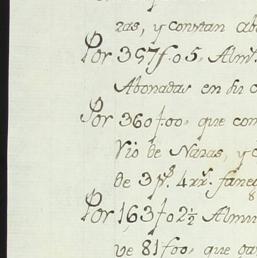 zas, y constan ab
Por 357f.05. Alm.
Abonadas en su c
Por 360f00, que con
Rio de Nazas, y c
de 3 4 fane
Por 163f02½ Almu
ve 81f00, que pa